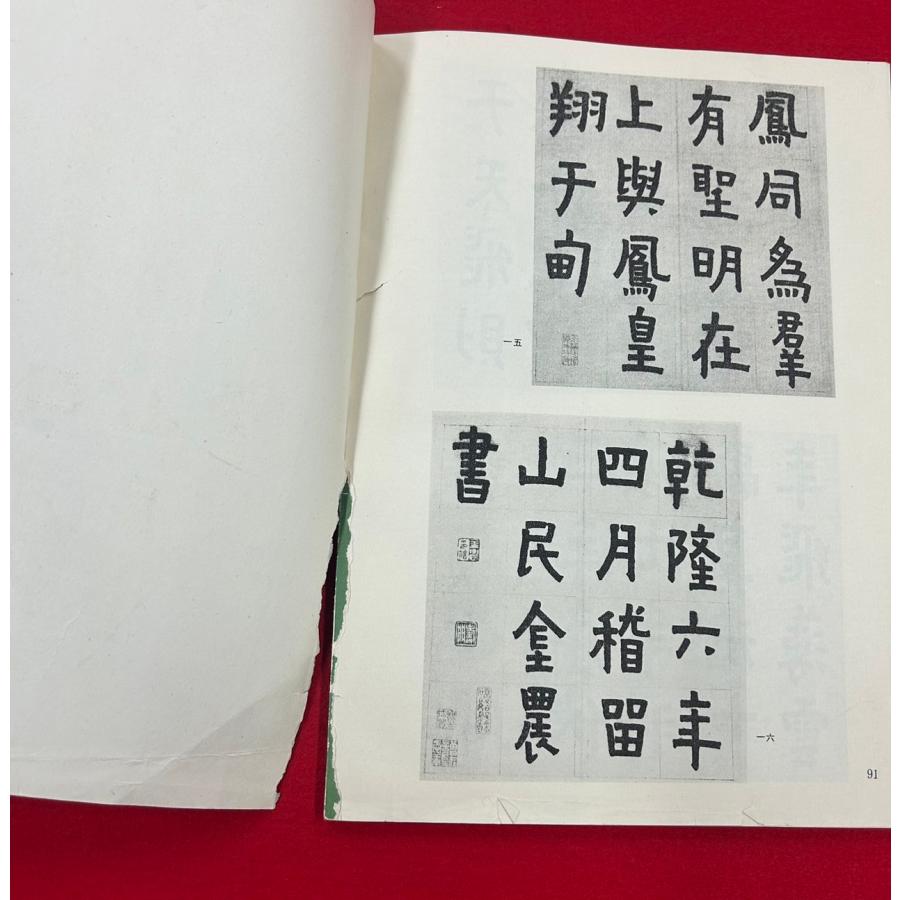 鳳同為羣
有聖明在
上與鳳皇
翔于甸
一五
乾隆六年
四月稽留
山民金農
書
一六
91